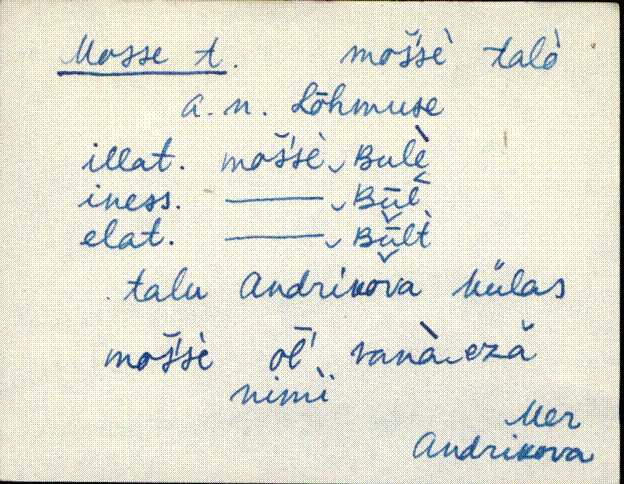 Mosse t. mošśè talò
a. n. Lõhmuse
illat. mošśè Bulè
iness. ——— Būl̆
elat. ——— Būlt̀
talu Andrikova külas
mošśè ol̄' vanà ezä
nimì
Mer
Andrikova